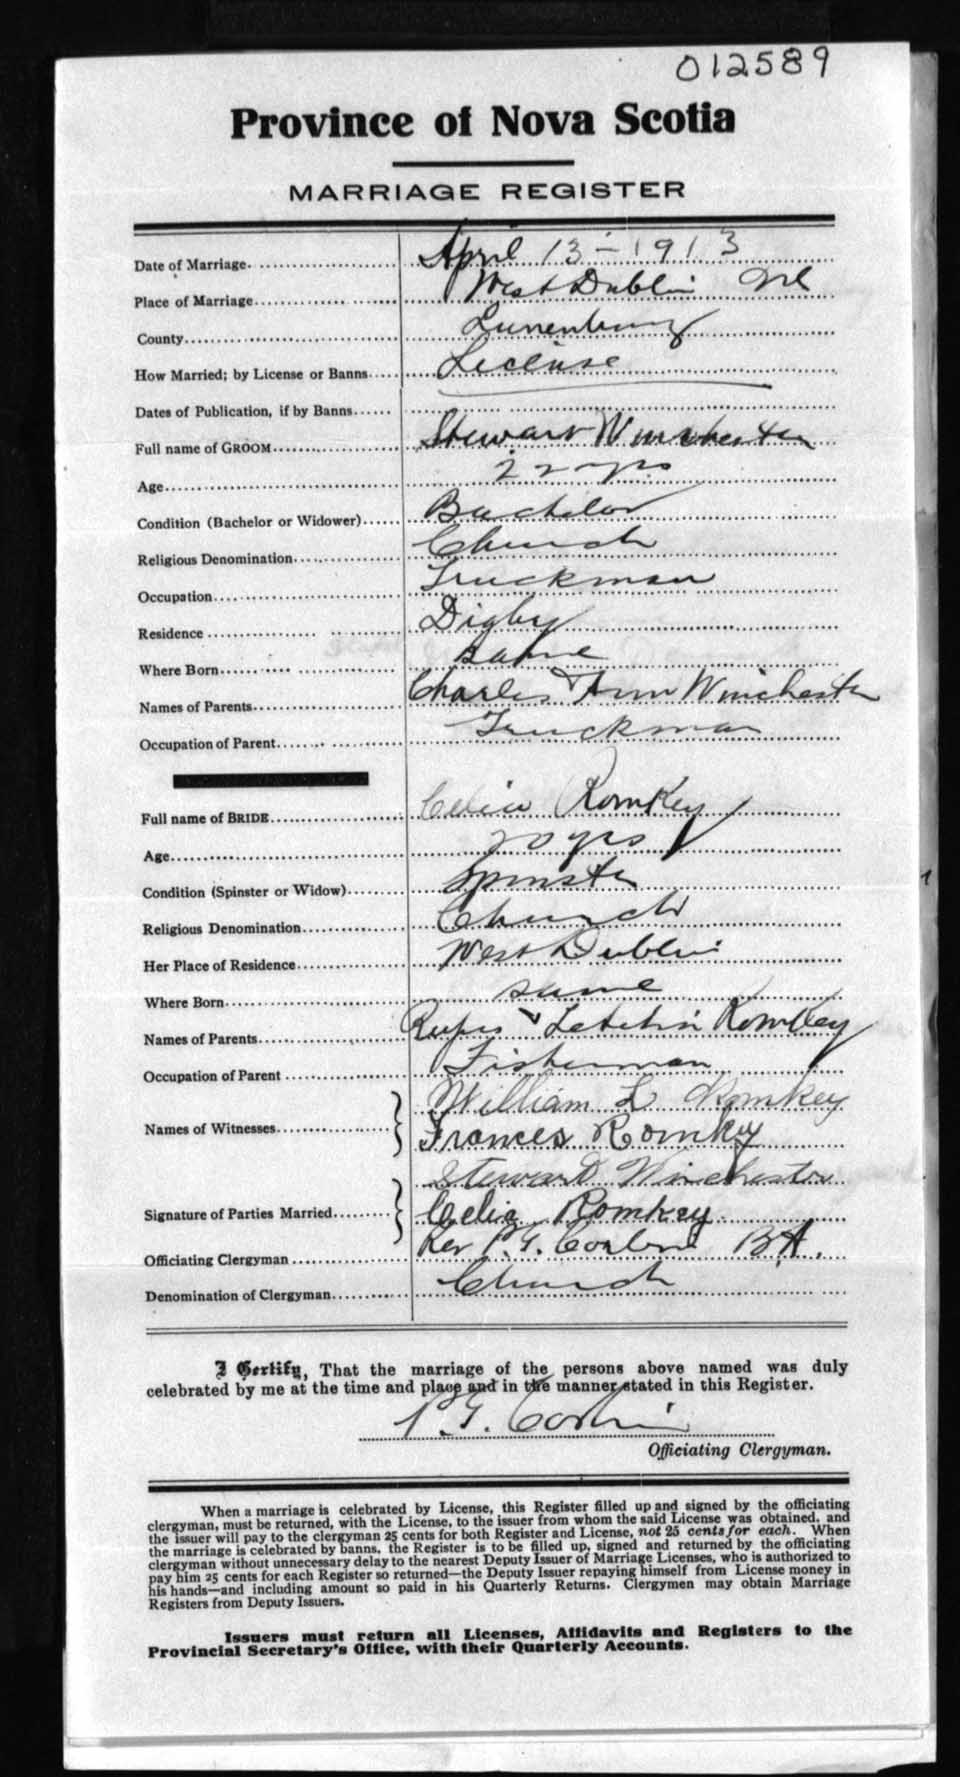 012589
Province of Nova Scotia
MARRIAGE REGISTER
Date of Marriage. April 13 - 1913
Place of Marriage West Dublin
County Lunenburg
How Married; by License or Banns License
Dates of Publication, if by Banns
Full name of GROOM Stewart Winchester
Age 22 yrs
Condition (Bachelor or Widower) Bachelor
Religious Denomination Church
Occupation Truckman
Residence Digby
Where Born same
Names of Parents Charles & Ann Winchester
Occupation of Parent Truckman
Full name of BRIDE Celia Romkey
Age 20 yrs
Condition (Spinster or Widow) Spinster
Religious Denomination Church
Her Place of Residence West Dublin
Where Born same
Names of Parents Rufus & Letitia Romkey
Occupation of Parent Fisherman
William L Romkey
Names of Witnesses Frances Romkey
Steward Winchester
Signature of Parties Married Celia Romkey
Officiating Clergyman Rev P.G. Corbin B.A.
Denomination of Clergyman Church
I Certify, That the marriage of the persons above named was duly
celebrated by me at the time and place and in the manner stated in this Register.
P.G. Corbin
Officiating Clergyman.
When a marriage is celebrated by License, this Register filled up and signed by the officiating
clergyman, must be returned, with the License, to the issuer from whom the said License was obtained, and
the issuer will pay to the clergyman 25 cents for both Register and License, not 25 cents for each. When
the marriage is celebrated by banns, the Register is to be filled up, signed and returned by the officiating
clergyman without unnecessary delay to the nearest Deputy Issuer of Marriage Licenses, who is authorized to
pay him 25 cents for each Register so returned—the Deputy Issuer repaying himself from License money in
his hands—and including amount so paid in his Quarterly Returns. Clergymen may obtain Marriage
Registers from Deputy Issuers.
Issuers must return all Licenses, Affidavits and Registers to the
Provincial Secretary's Office, with their Quarterly Accounts.